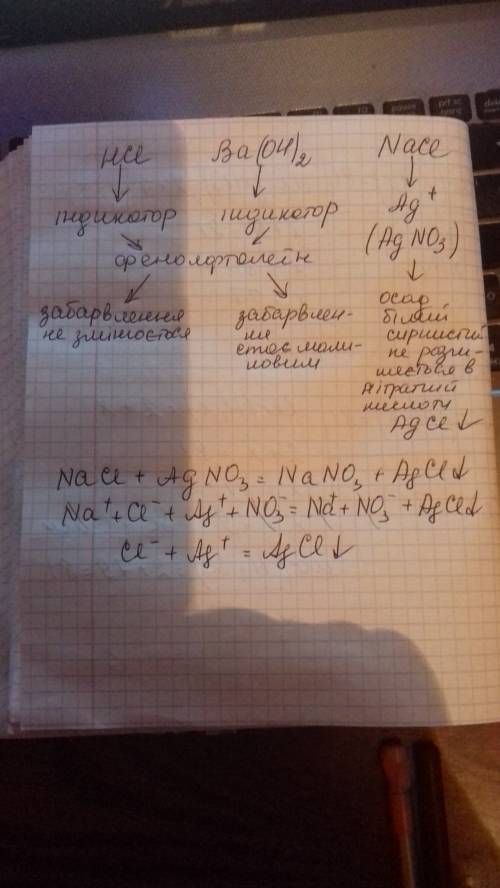 HCl Ba(OH)₂ NaCl
індикатор індикатор Ag⁺
(AgNO₃)
фенолфталеїн
забарвлення
не змінюється
забарвлен-
ня
стає мали-
новим
осад
білий
сирнистий
не розчи-
няється в
нітратній
кислоти
AgCl↓
NaCl + AgNO₃ = NaNO₃ + AgCl↓
Na⁺ + Cl⁻ + Ag⁺ + NO₃⁻ = Na⁺ + NO₃⁻ + AgCl↓
Cl⁻ + Ag⁺ = AgCl↓